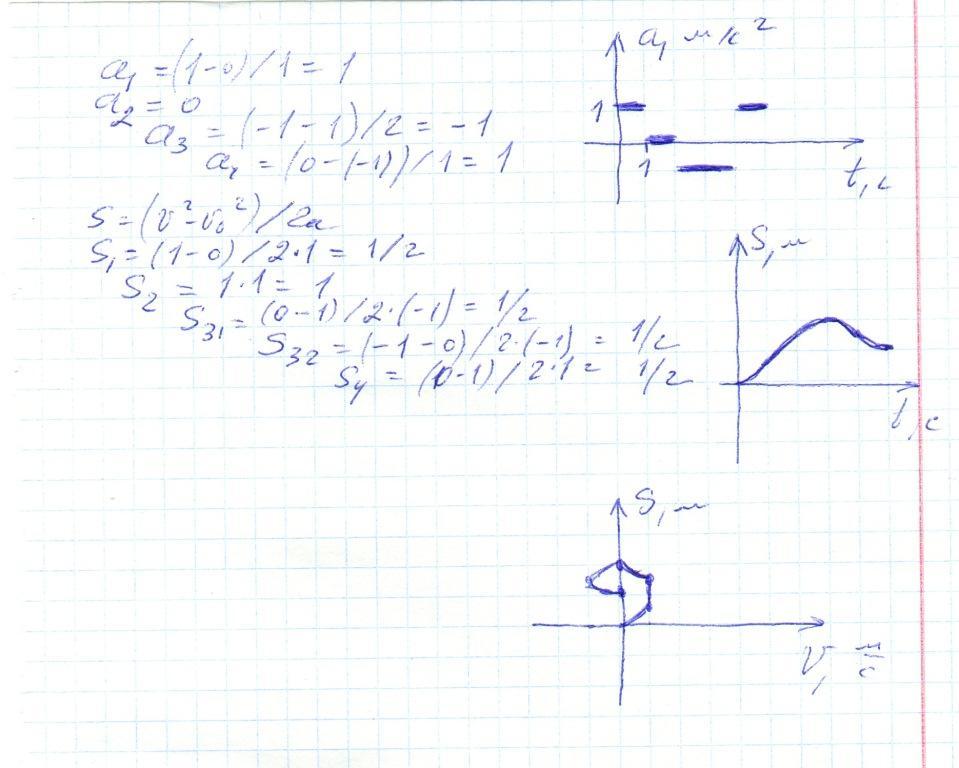 a₁ = (1-0)/1 = 1
a₂ = 0
a₃ = (-1-1)/2 = -1
a₄ = (0-(-1))/1 = 1
S = (v²-v₀²)/2a
S₁ = (1-0)/2·1 = 1/2
S₂ = 1·1 = 1
S₃₁ = (0-1)/2·(-1) = 1/2
S₃₂ = (-1-0)/2·(-1) = 1/2
S₄ = (0-1)/2·1 = 1/2
a, м/с²
1
1
t, с
S, м
t, с
S, м
V, м/с